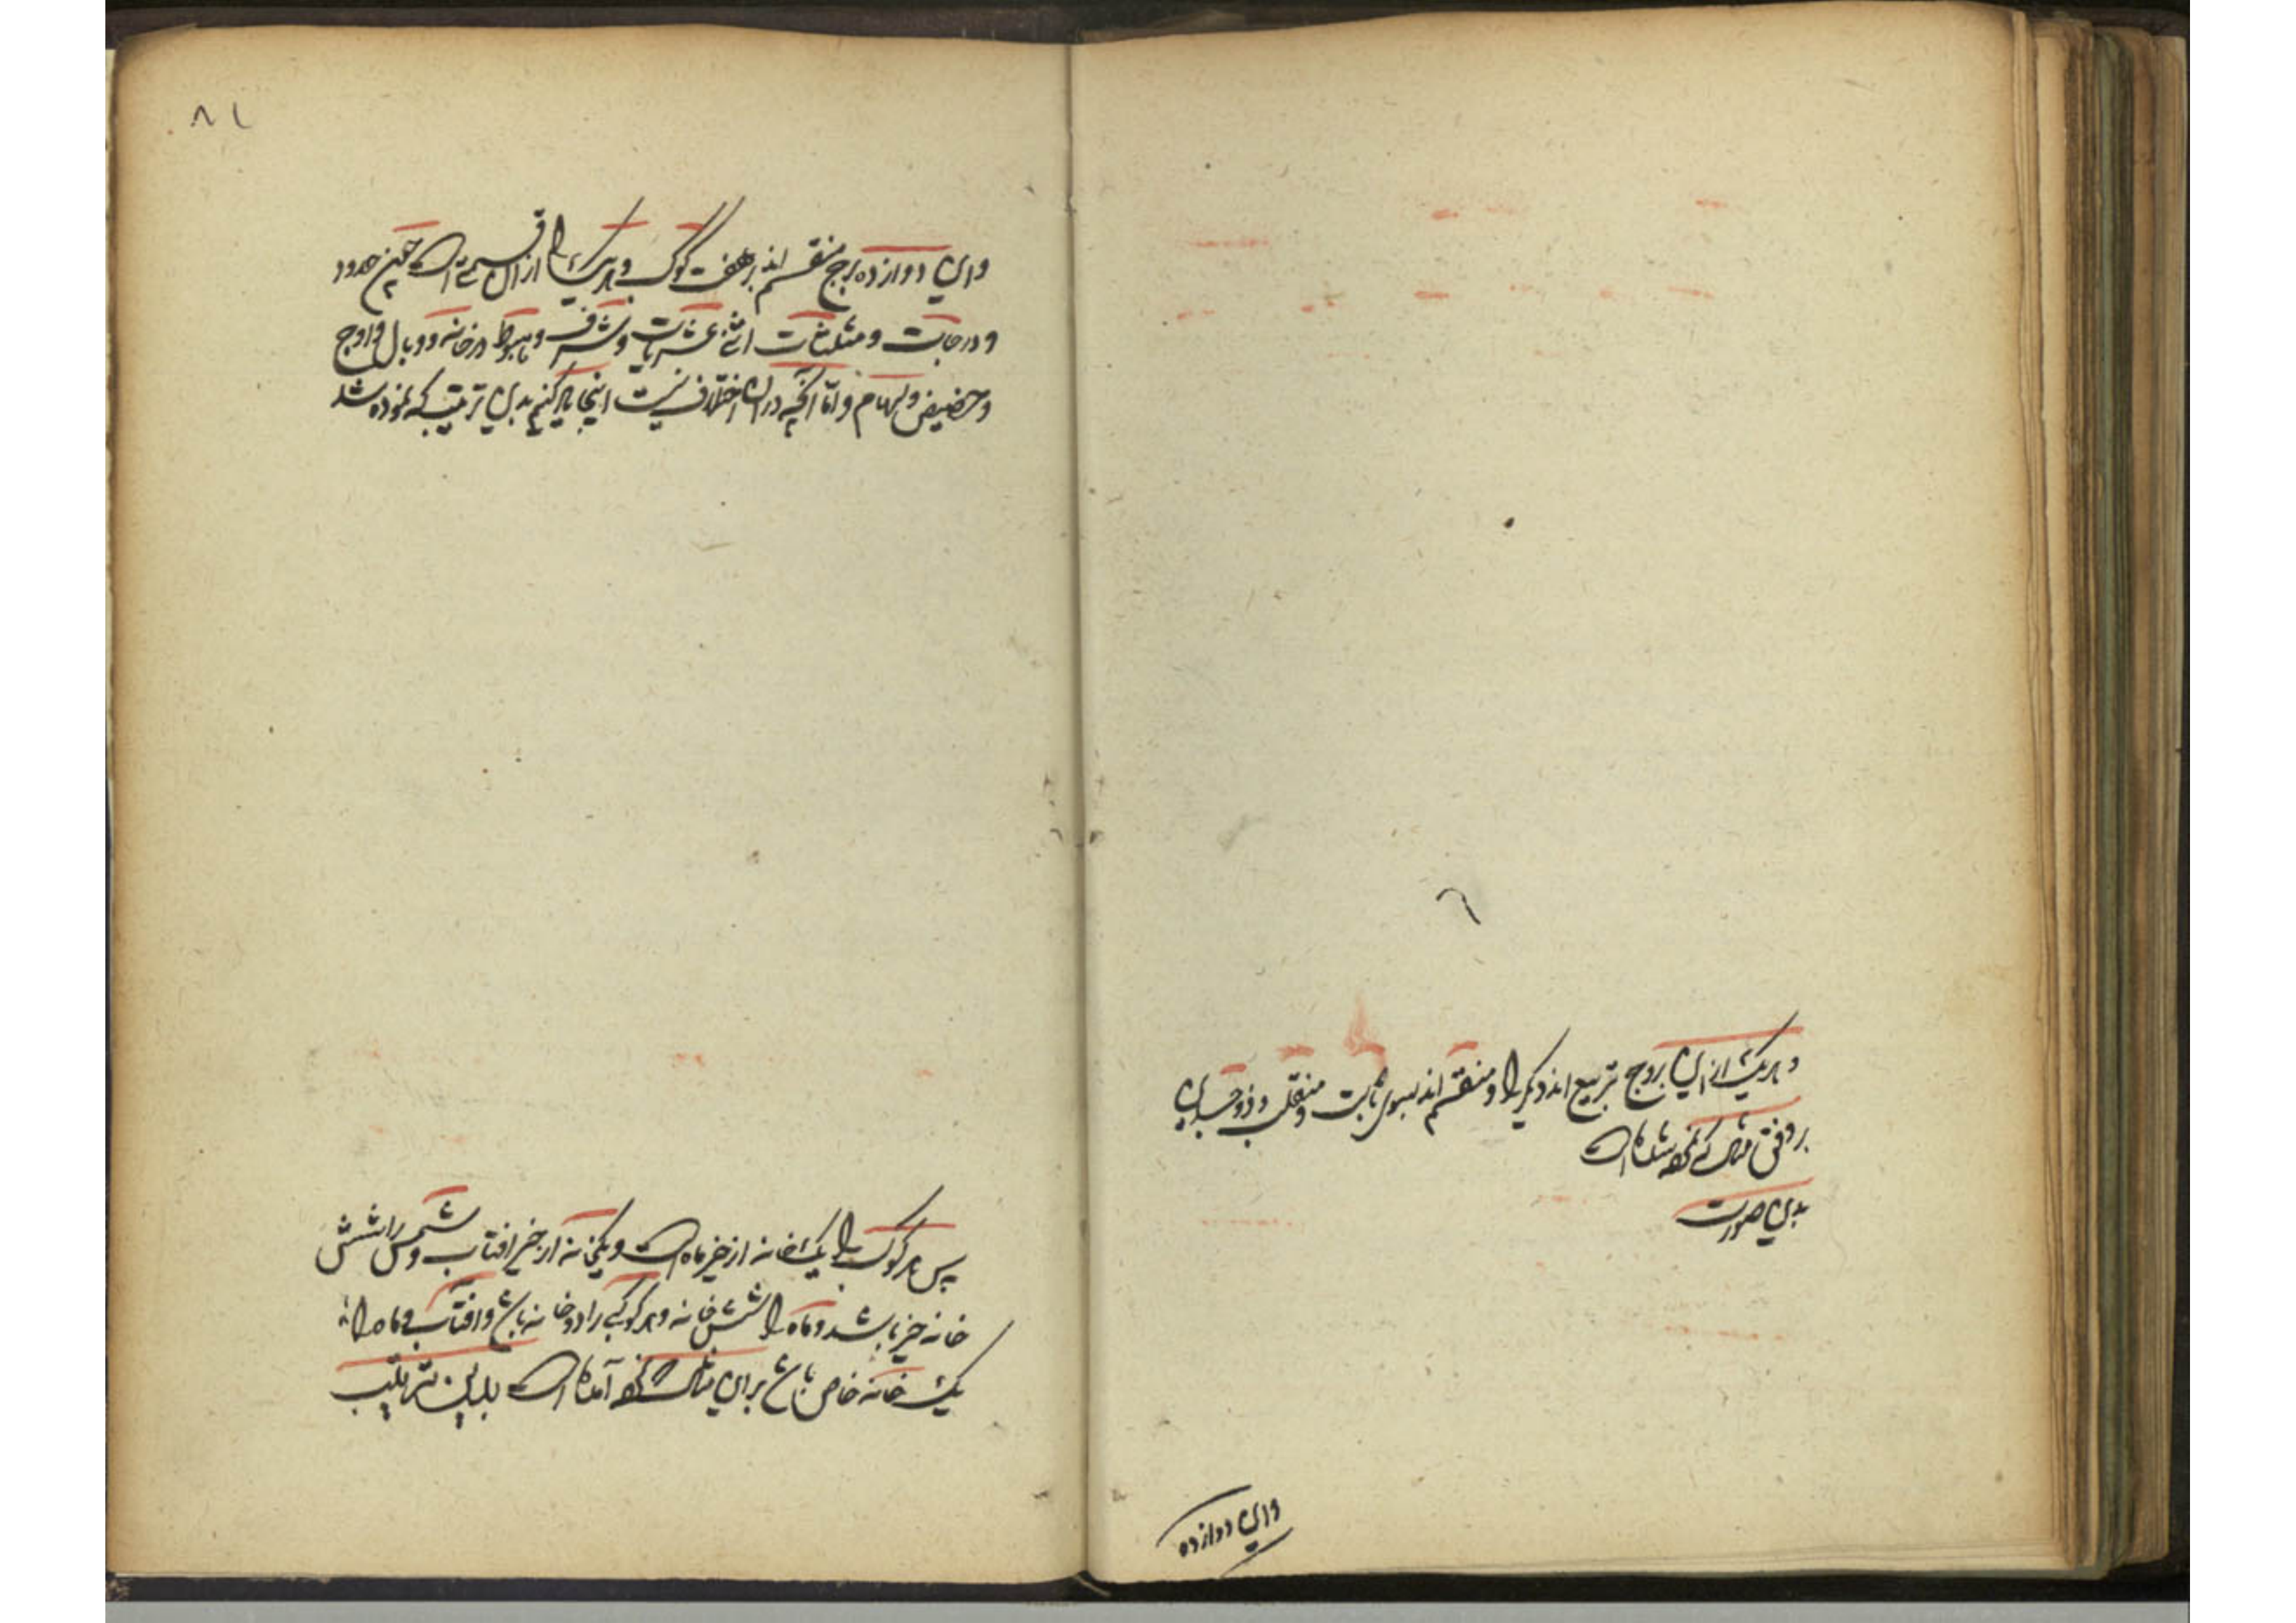 و هریک از این بروج بتربیع اند دیگر را و منقسم اند بسوی ثابت و منقلب و ذوجسدین
بر وفق مثالی که نموده شده است
بدین صورت
و این دوازده
۸۱
و این دوازده برج منقسم اند بر هفت کوکب و هر یک را از آن قسمی است چنین حدود
و درجات و مثلثات اثنی عشریات و شرف و هبوط در خانه و وبال و اوج
و حضیض و سهام و اما آنچه در آن اختلاف نیست اینجا یاد کنیم بدین ترتیب که نموده شد
پس هر کوکب را یک خانه از حیز ماه است و یکخانه از حیز افتاب و شمس را شش
خانه حیز باشد و ماه را شش خانه و هر کوکبی را دو خانه باشد و افتاب و ماه را
یک خانه خاص باشد بر این مثال که نموده آمده است بدین ترتیب